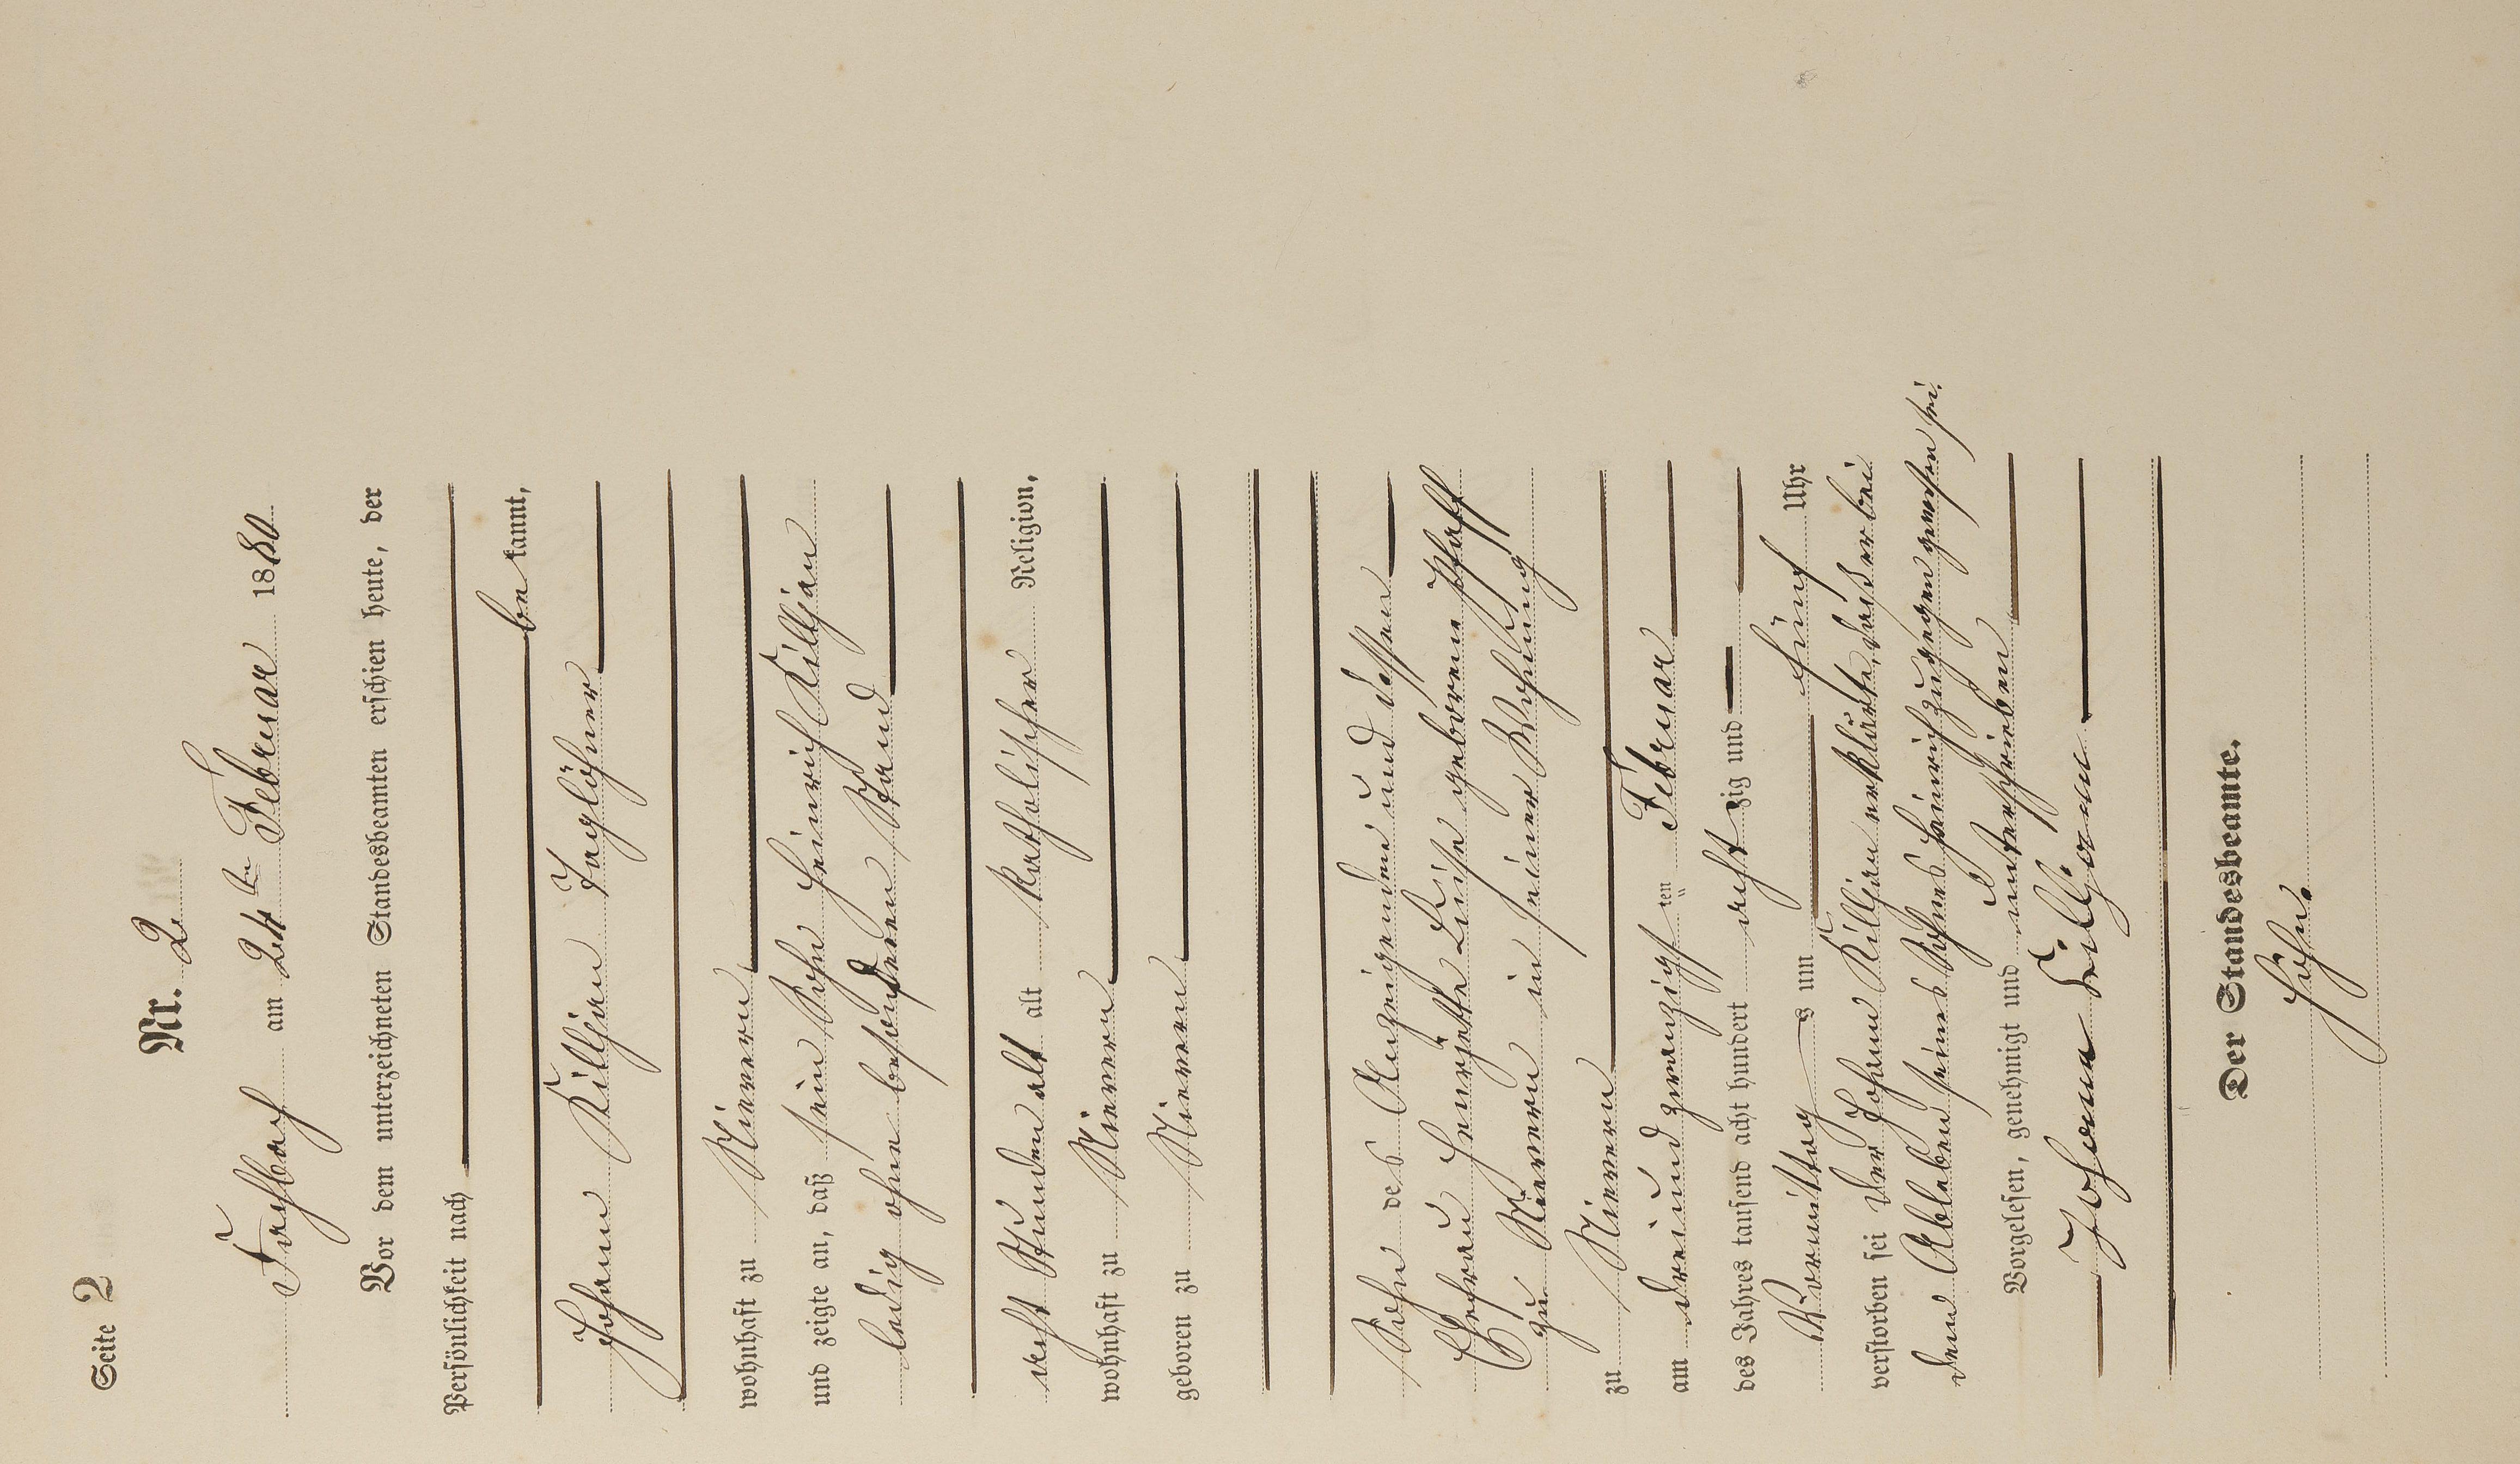 Seite 2
Nr. 2
Fachbach am 24ten Februar 1880
Vor dem unterzeichneten Standesbeamten erschien heute, der
Persönlichkeit nach
be kannt,
Johann Killjan Taglöhner
wohnhaft zu Nievern
und zeigte an, daß sein Sohn Heinrich Killjan
ledig ohne besonderen Stand
acht Stunden alt alt katholischer Religion,
wohnhaft zu Nievern
geboren zu Nievern
Sohn des Anzeigenden und dessen
Ehefrau Henrjette Luise geborene Pfaff
zu Nievern in seiner Wohnung
zu Nievern
am dreiundzwanzigsten Februar
des Jahres tausend acht hundert acht zig und
Vormittags um fünf Uhr
verstorben sei der Johann Killjan erklärte, daß er bei
dem Ableben seines Sohnes Heinrich zugegen gewesen sei.
Vorgelesen, genehmigt und unterschrieben
Johann Killjann
Der Standesbeamte.
Höhn.